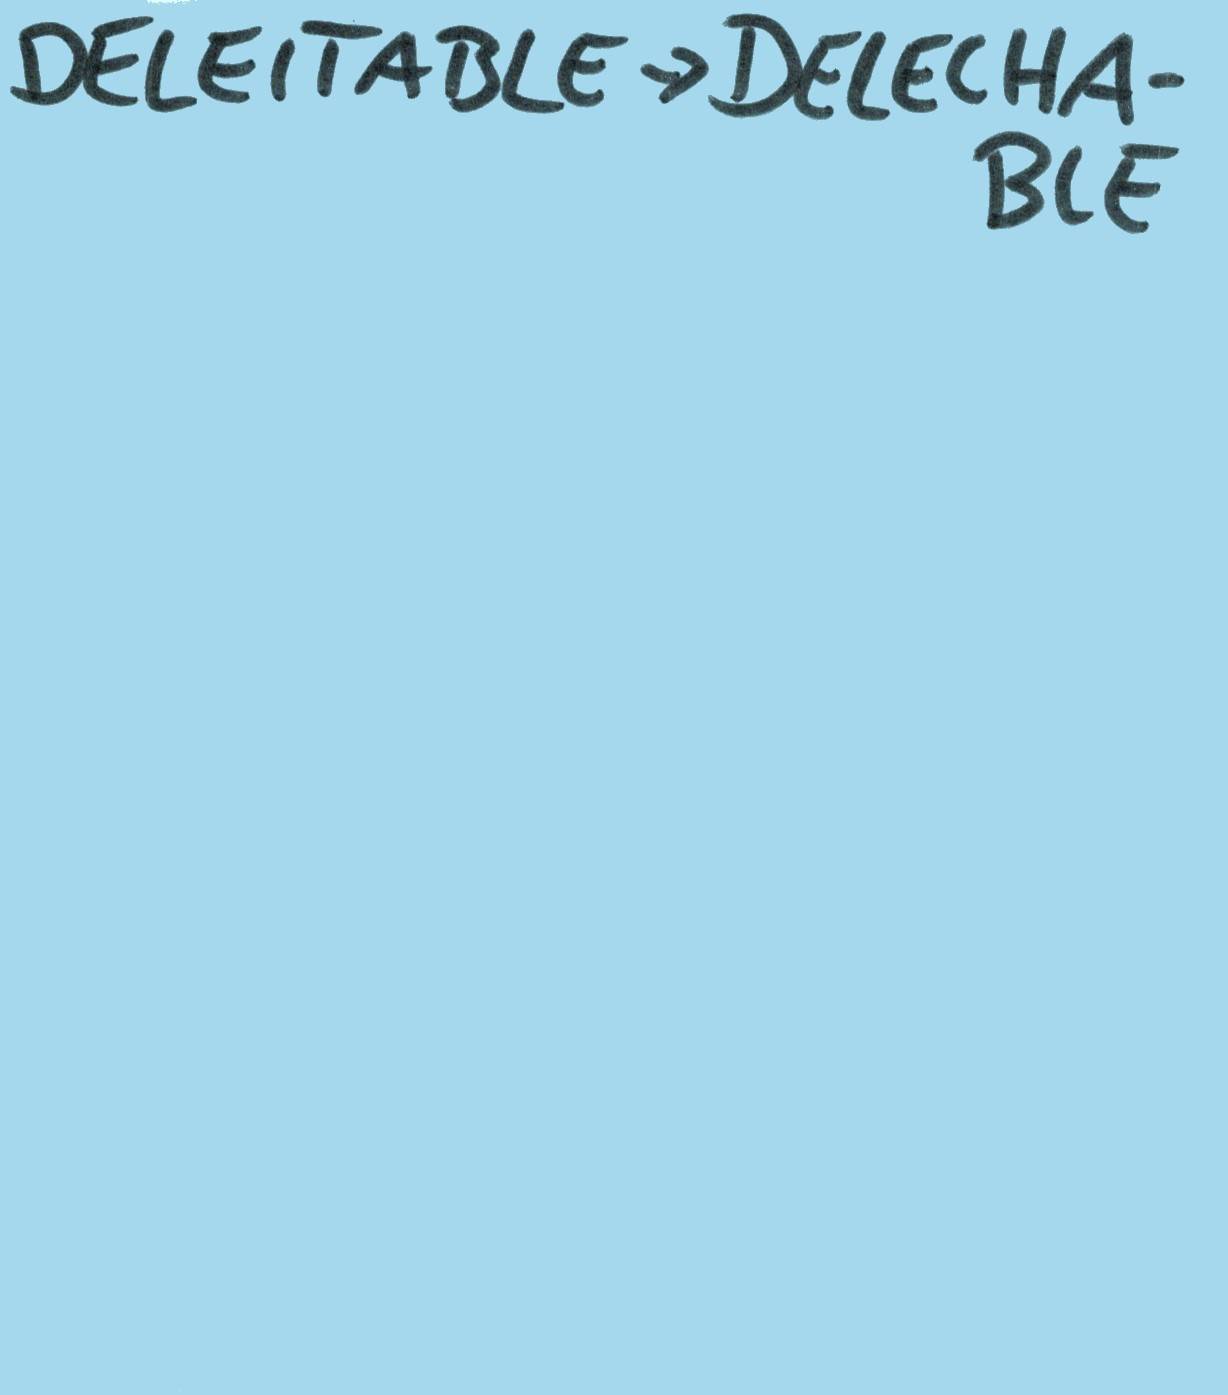 DELEITABLE → DELECHA-
BLE